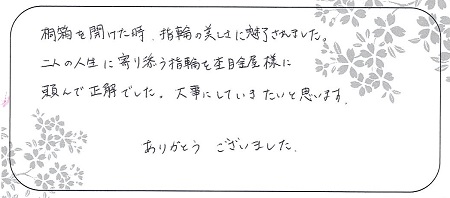 桐箱を開けた時、指輪の美しさに魅了されました。
二人の人生に寄り添う指輪を杢目金屋様に
頼んで正解でした。大事にしていきたいと思います。
ありがとう ございました.